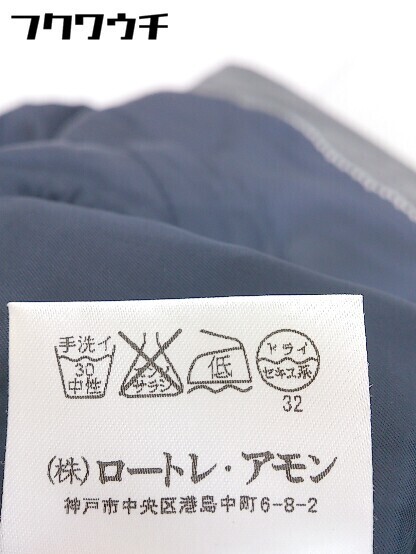 フクワウチ
手洗イ
30
中性
エンソ
サラシ
低
ドライ
セキユ系
32
(株)ロートレ・アモン
神戸市中央区港島中町6-8-2